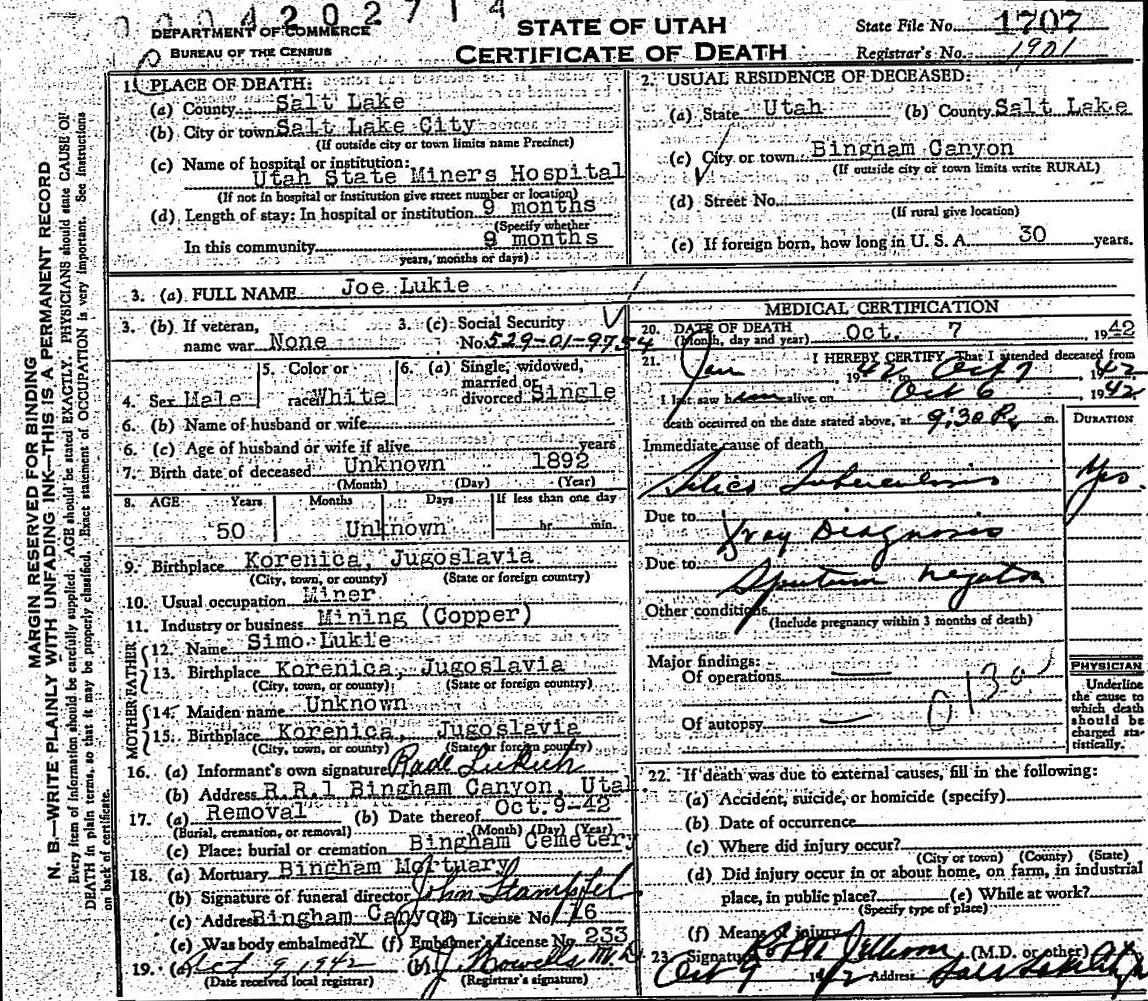 0004202714
DEPARTMENT OF COMMERCE
BUREAU OF THE CENSUS
STATE OF UTAH
CERTIFICATE OF DEATH
State File No. 1707
Registrar's No. 1901
MARGIN RESERVED FOR BINDING
N. B.—WRITE PLAINLY WITH UNFADING INK—THIS IS A PERMANENT RECORD
Every item of information should be carefully supplied. AGE should be stated EXACTLY. PHYSICIANS should state CAUSE OF
DEATH in plain terms, so that it may be properly classified. Exact statement of OCCUPATION is very important. See instructions
on back of certificate.
1. PLACE OF DEATH:
(a) County Salt Lake
(b) City or town Salt Lake City
(If outside city or town limits name Precinct)
(c) Name of hospital or institution:
Utah State Miners Hospital
(If not in hospital or institution give street number or location)
(d) Length of stay: In hospital or institution 9 months
(Specify whether
In this community 9 months
years, months or days)
2. USUAL RESIDENCE OF DECEASED:
(a) State Utah (b) County Salt Lake
(c) City or town Bingham Canyon
(If outside city or town limits write RURAL)
(d) Street No.
(If rural give location)
(e) If foreign born, how long in U. S. A. 30 years.
3. (a) FULL NAME Joe Lukie
3. (b) If veteran, name war None
3. (c) Social Security No. 529-01-9754
4. Sex Male
5. Color or race White
6. (a) Single, widowed, married or divorced Single
6. (b) Name of husband or wife
6. (c) Age of husband or wife if alive years
7. Birth date of deceased Unknown 1892
(Month) (Day) (Year)
8. AGE Years Months Days If less than one day
50 Unknown hr. min.
9. Birthplace Korenica, Jugoslavia
(City, town, or county) (State or foreign country)
10. Usual occupation Miner
11. Industry or business Mining (Copper)
FATHER
12. Name Simo Lukie
13. Birthplace Korenica, Jugoslavia
(City, town, or county) (State or foreign country)
MOTHER
14. Maiden name Unknown
15. Birthplace Korenica, Jugoslavia
(City, town, or county) (State or foreign country)
16. (a) Informant's own signature Rade Lukich
(b) Address R.R.1 Bingham Canyon, Utah
17. (a) Removal (b) Date thereof Oct. 9-42
(Burial, cremation, or removal) (Month) (Day) (Year)
(c) Place: burial or cremation Bingham Cemetery
18. (a) Mortuary Bingham Mortuary
(b) Signature of funeral director John Stampfel
(c) Address Bingham Canyon (d) License No. 16
(e) Was body embalmed? Y (f) Embalmer's License No. 233
19. (a) Oct 9 1942 (b) J. Howells M.D.
(Date received local registrar) (Registrar's signature)
MEDICAL CERTIFICATION
20. DATE OF DEATH Oct. 7 1942
(Month, day and year)
21. I HEREBY CERTIFY That I attended deceased from
Jan 1942 to Oct 7, 1942
I last saw him alive on Oct 6 1942
death occurred on the date stated above, at 9:30 P. m.
DURATION
Immediate cause of death
Silico Tuberculosis Yrs.
Due to Xray Diagnosis
Due to Sputum negative
Other conditions
(Include pregnancy within 3 months of death)
Major findings:
Of operations
Of autopsy
0130
PHYSICIAN
Underline
the cause to
which death
should be
charged sta-
tistically.
22. If death was due to external causes, fill in the following:
(a) Accident, suicide, or homicide (specify)
(b) Date of occurrence
(c) Where did injury occur?
(City or town) (County) (State)
(d) Did injury occur in or about home, on farm, in industrial
place, in public place? (e) While at work?
(Specify type of place)
(f) Means of injury
23. Signature (M.D. or other)
Oct 9 1942 Address Salt Lake City